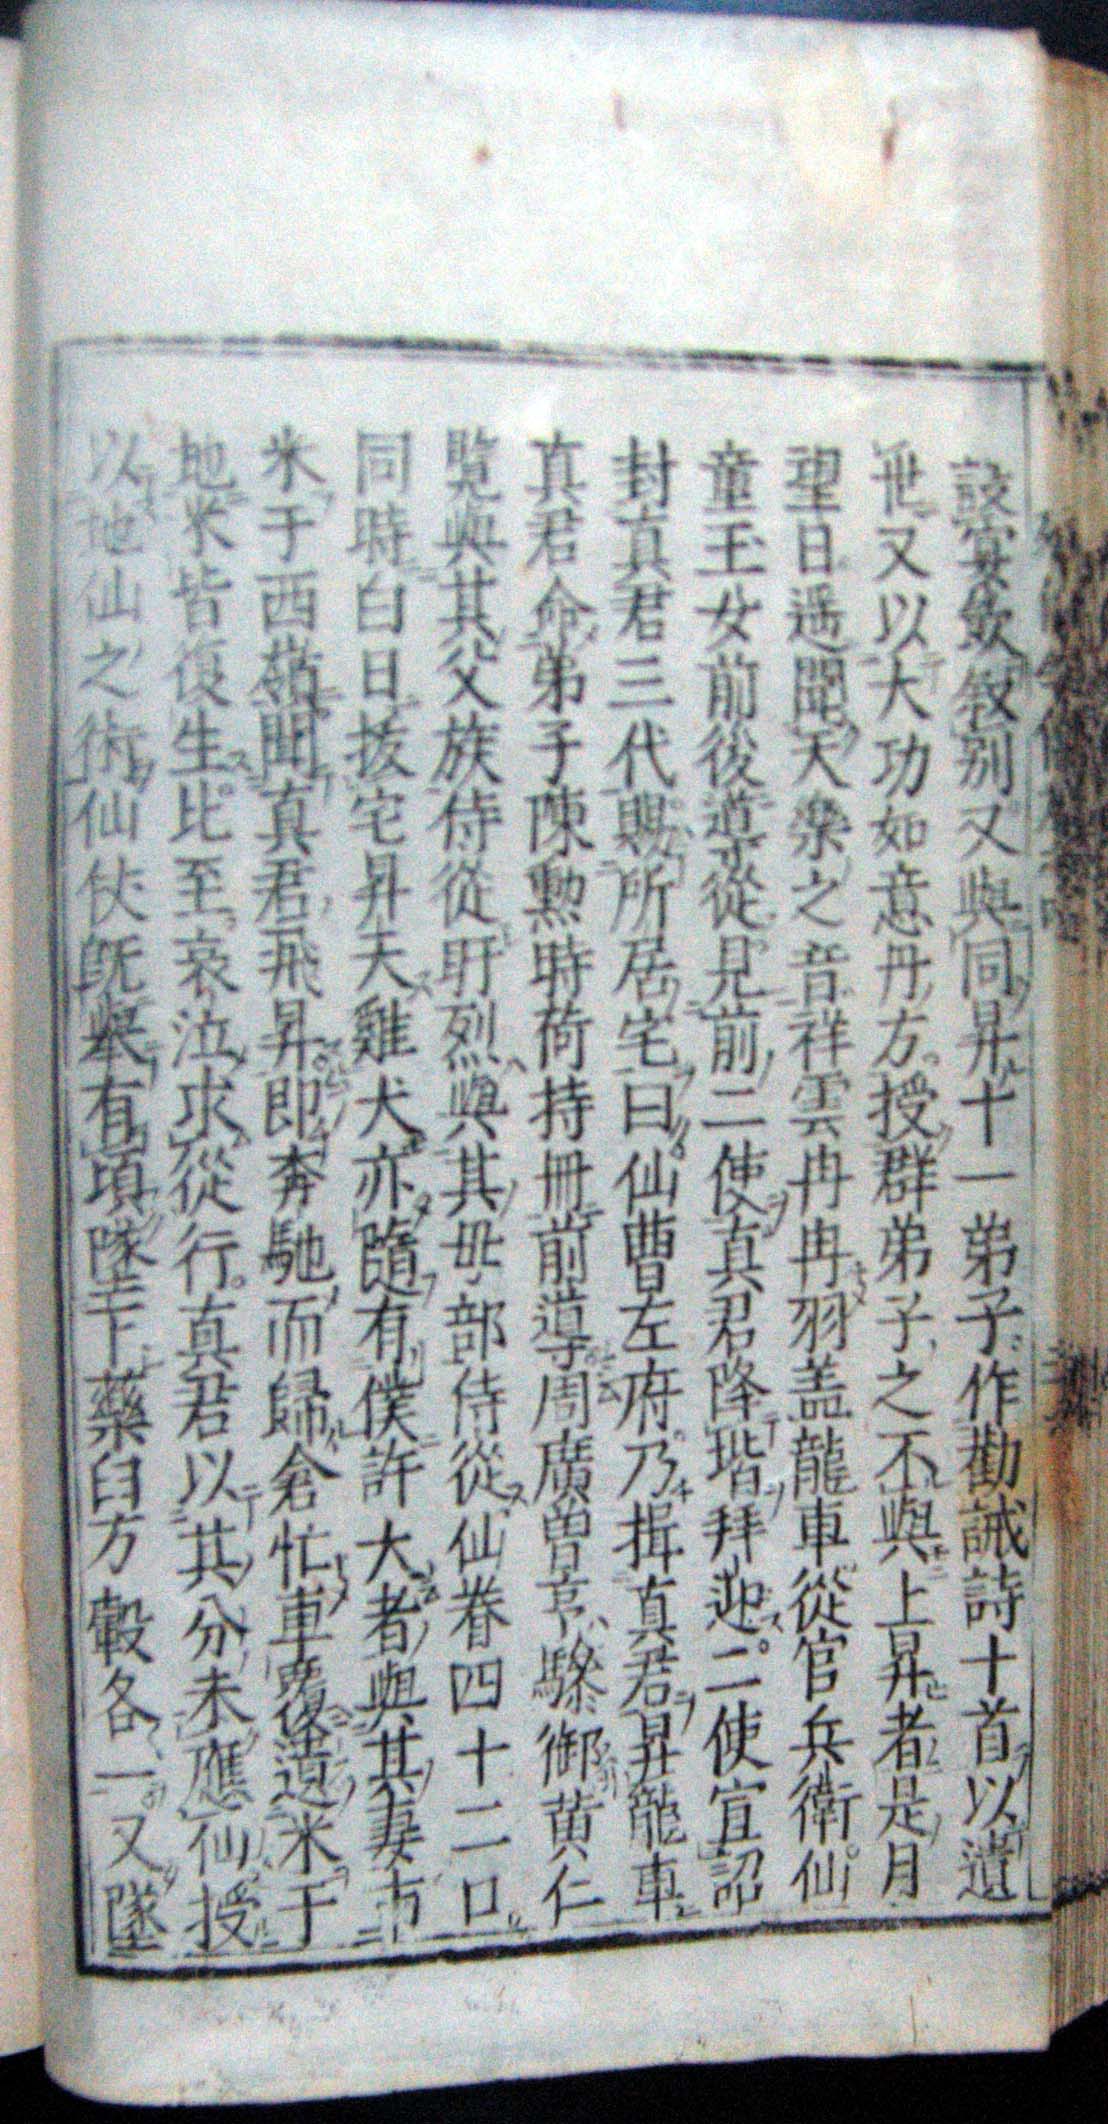 設宴欽敘別又與同昇十一弟子作勸誡詩十首以遺
世又以大功如意丹方授群弟子之不與上昇者是月
望日遥聞天樂之音祥雲冉冉羽盖龍車從官兵衛仙
童玉女前後導從見前二使真君降堦拜迎二使宣詔
封真君三代賜所居宅曰仙曹左府乃揖真君昇龍車
真君命弟子陳勲時荷持冊前導周廣曽亨驂御黄仁
覽與其父族侍從盱烈與其母部侍從仙眷四十二口
同時白日拔宅昇天雞犬亦隨有僕許大者與其妻市
米于西嶺聞真君飛昇即奔馳而歸倉忙車覆遺米于
地米皆復生比至哀泣求從行真君以其分未應仙授
以地仙之術仙仗既舉有頃墜下藥臼方轂各一又墜